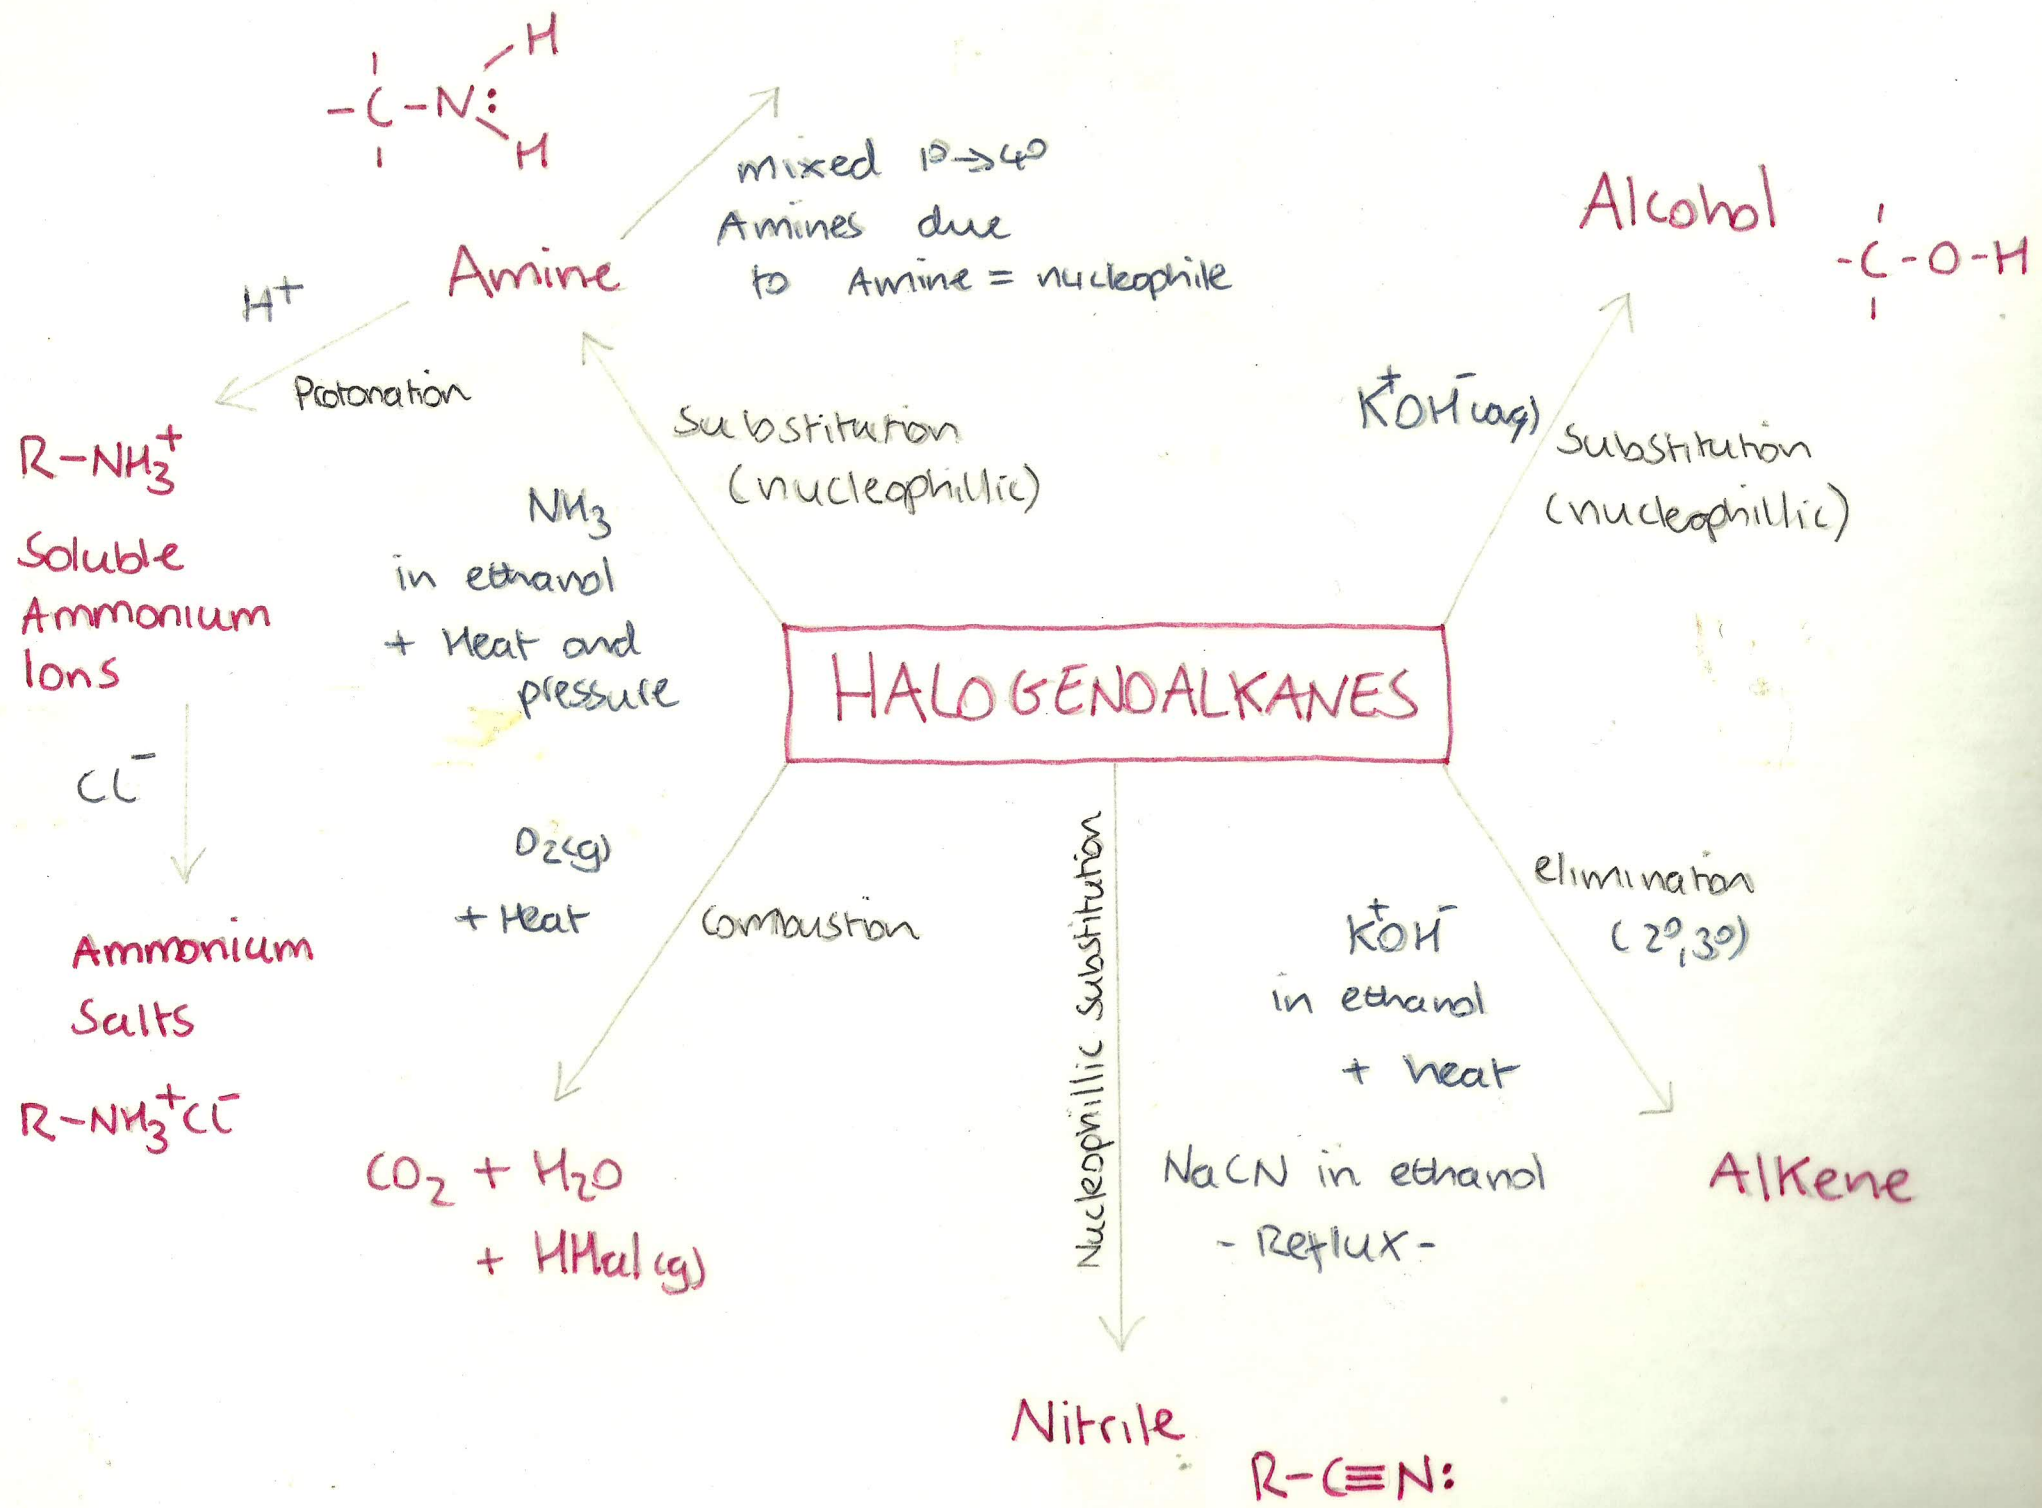 H
-C-N:
H
mixed 1°→4°
Amines due
to Amine = nucleophile
Amine
H⁺
Protonation
R-NH₃⁺
Soluble
Ammonium
Ions
Cl⁻
Ammonium
Salts
R-NH₃⁺Cl⁻
Substitution
(nucleophillic)
NH₃
in ethanol
+ Heat and
pressure
Alcohol
-C-O-H
K⁺OH⁻(aq)
Substitution
(nucleophillic)
HALOGENOALKANES
O₂(g)
+ Heat
Combustion
CO₂ + H₂O
+ HHal(g)
Nucleophillic Substitution
NaCN in ethanol
- Reflux -
Nitrile
R-C≡N:
elimination
(2°,3°)
K⁺OH⁻
in ethanol
+ heat
Alkene